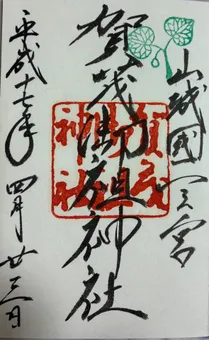 山城國一宮
賀茂御祖神社
平成十七年四月廿三日
賀茂
御祖
神社